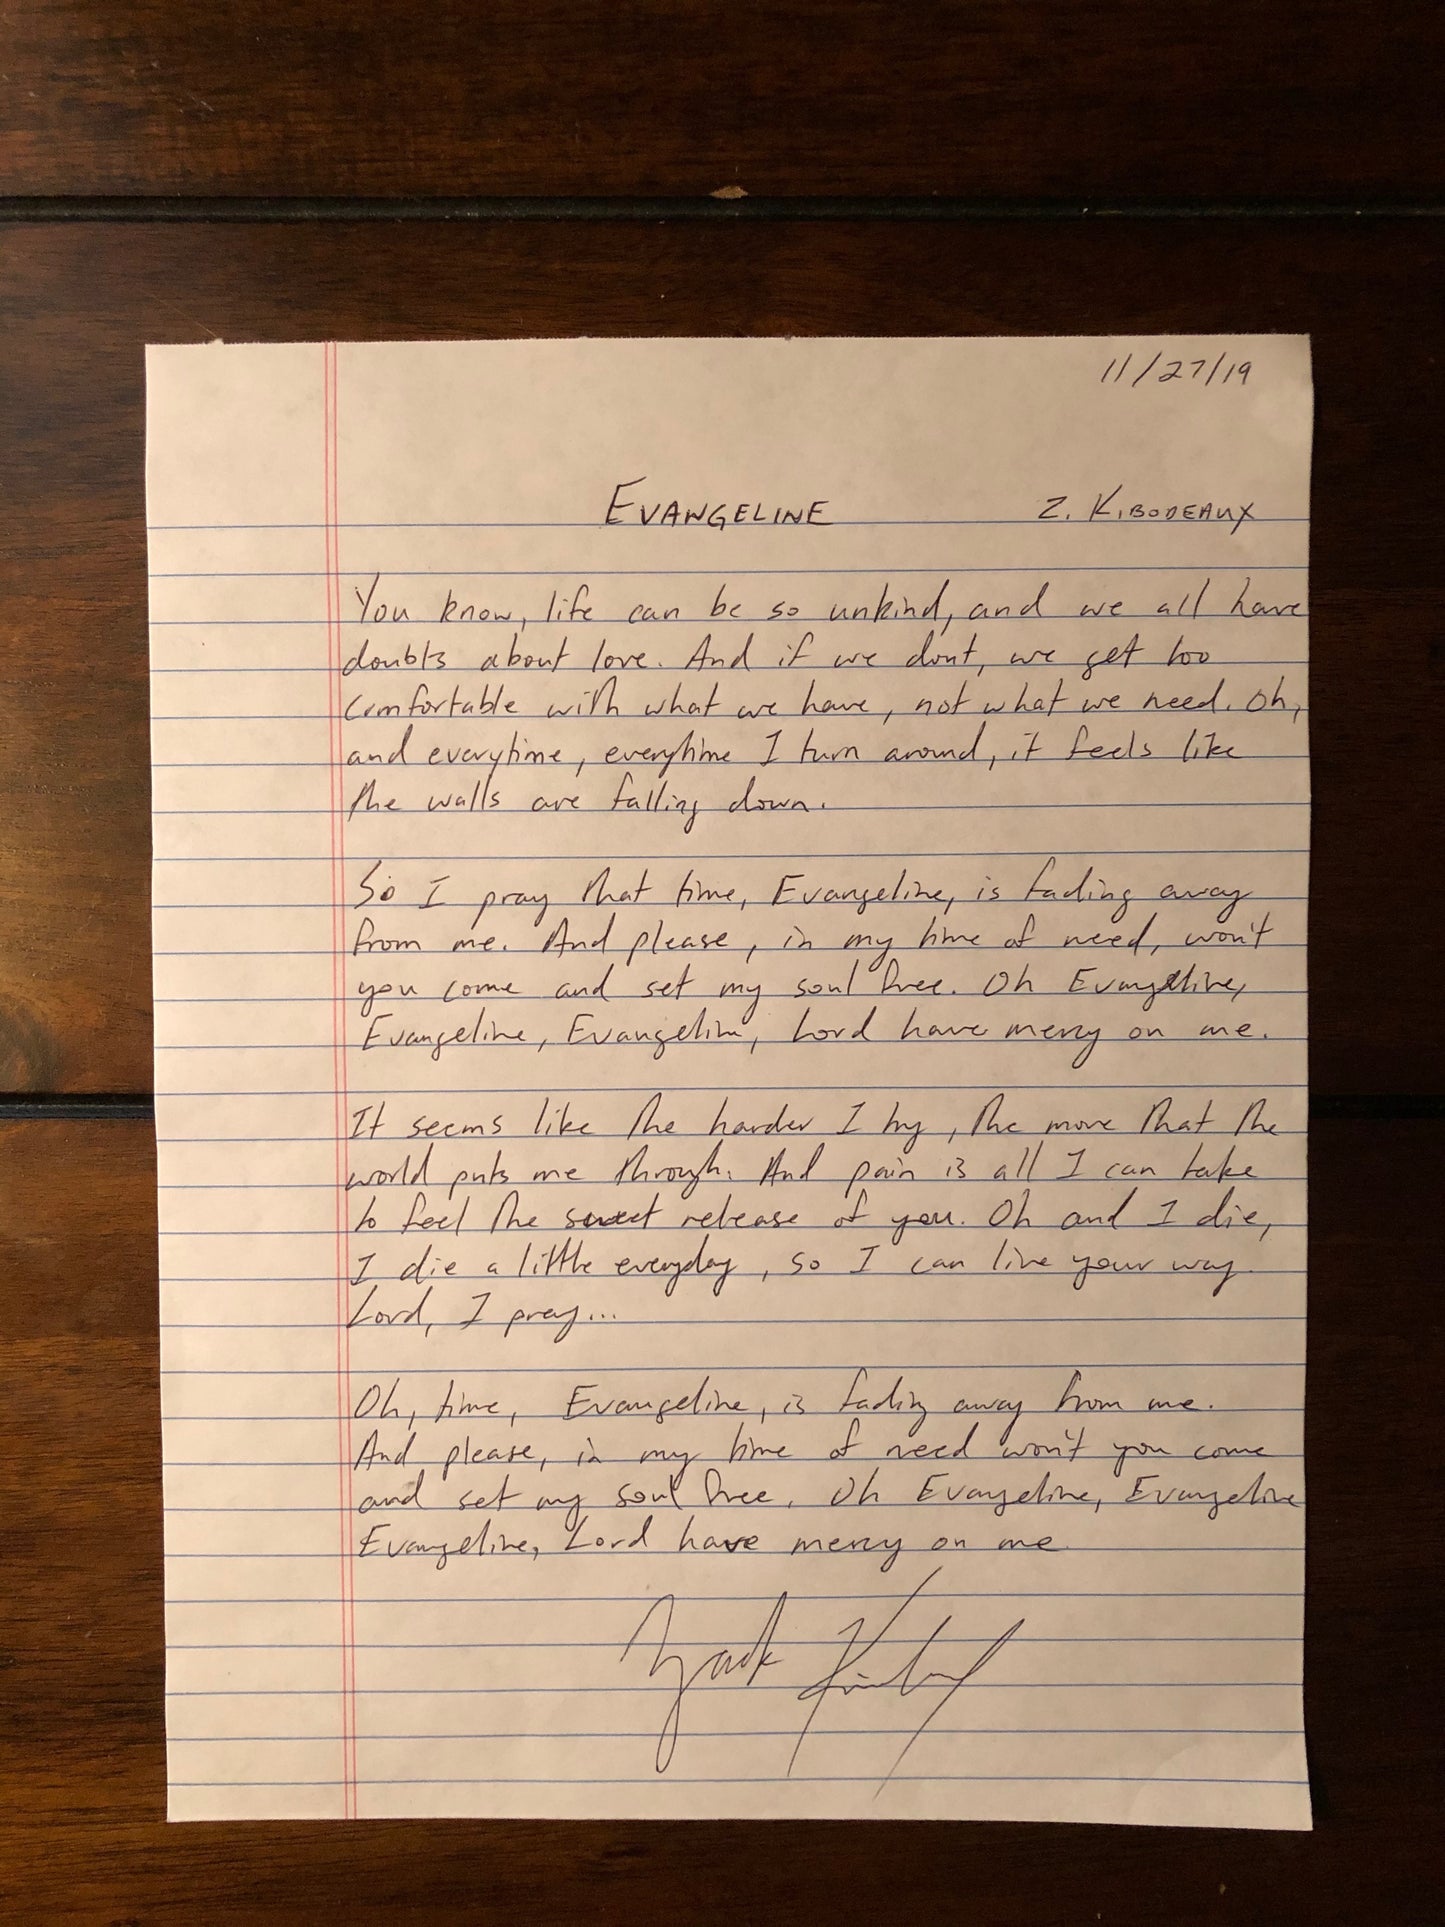 11/27/19
EVANGELINE Z. KIBODEAUX
You know, life can be so unkind, and we all have
doubts about love. And if we dont, we get too
comfortable with what we have, not what we need. Oh,
and everytime, everytime I turn around, it feels like
the walls are falling down.
So I pray that time, Evangeline, is fading away
from me. And please, in my time of need, won't
you come and set my soul free. Oh Evangeline,
Evangeline, Evangeline, Lord have mercy on me.
It seems like the harder I try, the more that the
world puts me through. And pain is all I can take
to feel the sweet release of you. Oh and I die,
I die a little everyday, so I can live your way.
Lord, I pray...
Oh, time, Evangeline, is fading away from me.
And please, in my time of need won't you come
and set my soul free. Oh Evangeline, Evangeline
Evangeline, Lord have mercy on me.
Zack